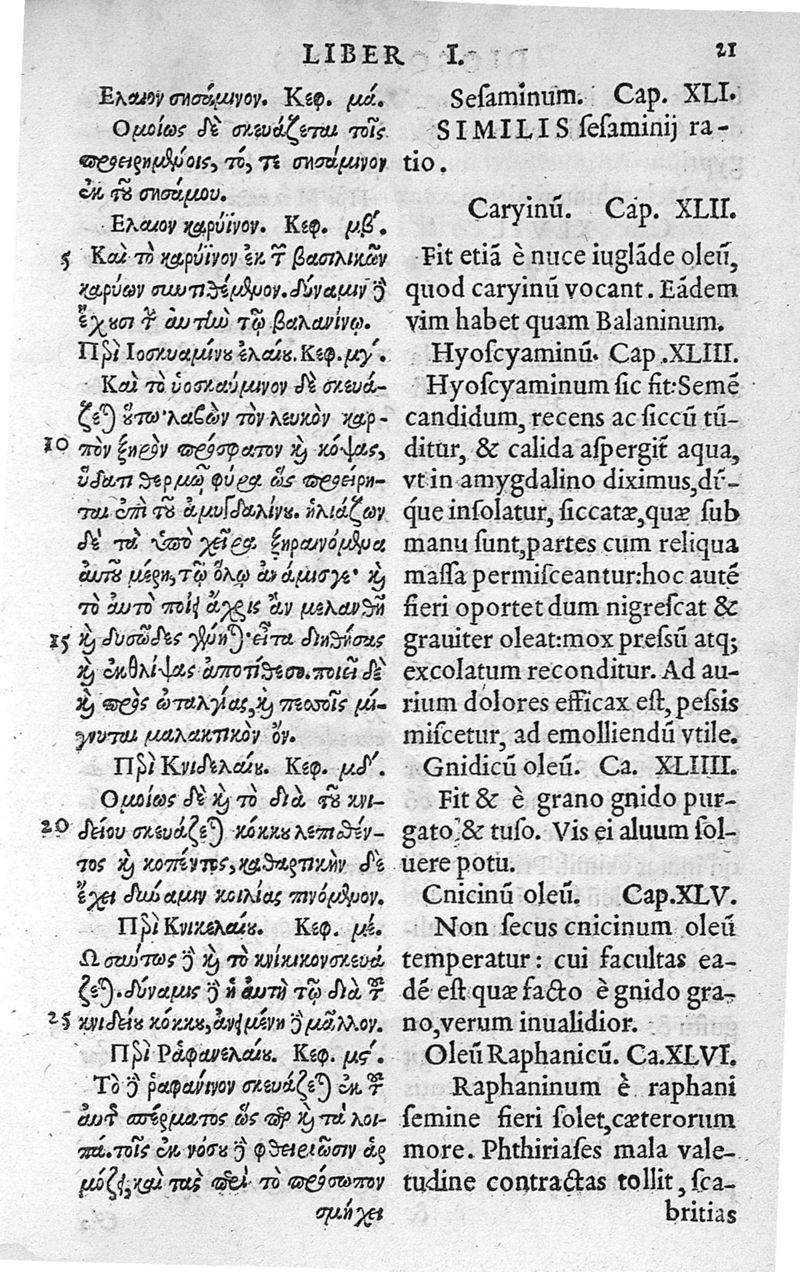 LIBER I. 21
Ελαιον σησάμινον. Κεφ. μά.
Ομοίως δὲ σκευάζεται τοῖς
προειρημένοις, τό, τε σησάμινον
ἐκ τοῦ σησάμου.
Ελαιον καρύϊνον. Κεφ. μβ'.
5 Καὶ τὸ καρύϊνον ἐκ τῶν βασιλικῶν
καρύων συντιθέμενον. δύναμιν δὲ
ἔχουσι τὴν αὐτὴν τῷ βαλανίνῳ.
Περὶ Ιοσκυαμίνου ἐλαίου. Κεφ. μγ'.
Καὶ τὸ ὑοσκυάμινον δὲ σκευά-
ζεται οὕτω· λαβὼν τὸν λευκὸν καρ-
10 πὸν ξηρὸν πρόσφατον καὶ κόψας,
ὕδατι θερμῷ φύρα ὡς προείρη-
ται ἐπὶ τοῦ ἀμυγδαλίνου. ἡλιάζων
δὲ τὰ ὑπὸ χεῖρα ξηραινόμενα
αὐτοῦ μέρη, τῷ ὅλῳ ἀνάμισγε· καὶ
τὸ αὐτὸ ποίει ἄχρις ἂν μελανθῇ
15 καὶ δυσῶδες γένηται· εἶτα διηθήσας
καὶ ἐκθλίψας ἀποτίθεσο. ποιεῖ δὲ
καὶ πρὸς ὠταλγίας, καὶ πεσσοῖς μί-
γνυται μαλακτικὸν ὄν.
Περὶ Κνιδελαίου. Κεφ. μδ'.
Ομοίως δὲ καὶ τὸ διὰ τοῦ κνι-
20 δείου σκευάζεται κόκκου λεπισθέν-
τος καὶ κοπέντος, καθαρτικὴν δὲ
ἔχει δύναμιν κοιλίας πινόμενον.
Περὶ Κνικελαίου. Κεφ. μέ.
Ωσαύτως δὲ καὶ τὸ κνίκικον σκευά
ζεται. δύναμις δὲ ἡ αὐτὴ τῷ διὰ τοῦ
25 κνιδείου κόκκου, ἀνειμένη δὲ μᾶλλον.
Περὶ Ραφανελαίου. Κεφ. μς'.
Τὸ δὲ ῥαφανίνον σκευάζεται ἐκ τοῦ
αὐτοῦ σπέρματος ὡς περ καὶ τὰ λοι-
πά. τοῖς ἐκ νόσου δὲ φθειριῶσιν ἁρ
μόζει, καὶ τὰς περὶ τὸ πρόσωπον
σμήχει
Seſaminum. Cap. XLI.
SIMILIS ſeſaminij ra-
tio.
Caryinū. Cap. XLII.
Fit etiā è nuce iuglāde oleū,
quod caryinū vocant. Eādem
vim habet quam Balaninum.
Hyoſcyaminū. Cap .XLIII.
Hyoſcyaminum ſic fit: Semē
candidum, recens ac ſiccū tū-
ditur, & calida aſpergit̄ aqua,
vt in amygdalino diximus, dū-
q́ue inſolatur, ſiccatæ, quæ ſub
manu ſunt, partes cum reliqua
maſſa permiſceantur: hoc autē
fieri oportet dum nigreſcat &
grauiter oleat: mox preſſū atq;
excolatum reconditur. Ad au-
rium dolores efficax eſt, peſſis
miſcetur, ad emolliendū vtile.
Gnidicū oleū. Ca. XLIIII.
Fit & è grano gnido pur-
gato, & tuſo. Vis ei aluum ſol-
uere potu.
Cnicinū oleū. Cap. XLV.
Non ſecus cnicinum oleū
temperatur: cui facultas ea-
dē eſt quæ facto è gnido gra-
no, verum inualidior.
Oleū Raphanicū. Ca. XLVI.
Raphaninum è raphani
ſemine fieri ſolet, cæterorum
more. Phthiriaſes mala vale-
tudine contractas tollit, ſca-
britias